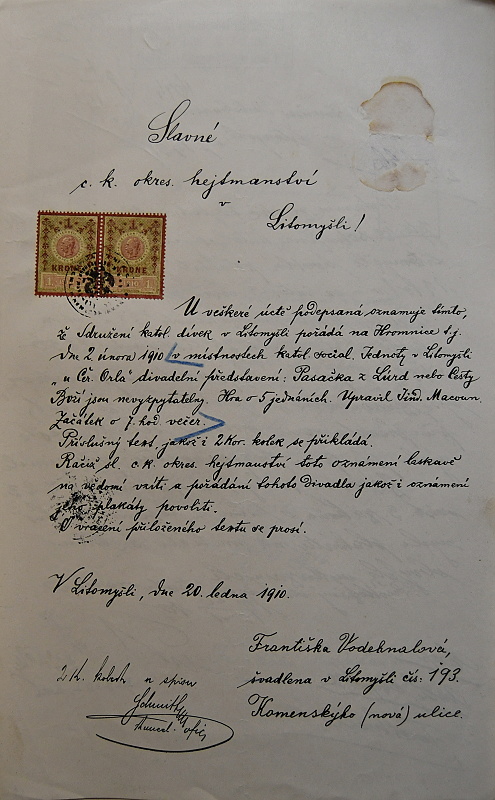 Slavné
c. k. okres. hejtmanství
v
Litomyšli!
1 1
KRONE KRONE
V veškeré úctě podepsaná oznamuje tímto,
že Sdružení katol. dívek v Litomyšli pořádá na Hromnice t.j.
dne 2. února 1910 v místnostech katol. social. Jednoty v Litomyšli
„u Čer. Orla" divadelní představení: Pasačka z Lúrd nebo Cesty
Boží jsou nevyzpytatelny. Hra o 5 jednáních. Upravil Jind. Macoun.
Začátek o 7. hod. večer.
Příslušný text, jakož i 2 kor. kolek se přikládá.
Račiž sl. c. k. okres. hejtmanství toto oznámení laskavě
na vědomí vzíti a pořádání tohoto divadla jakož i oznámení
jeho plakáty povoliti.
O vrácení přiloženého textu se prosí.
V Litomyšli, dne 20. ledna 1910.
Františka Vodehnalová,
švadlena v Litomyšli čís: 193.
Komenskýho (nová) ulice.
2 K kolek